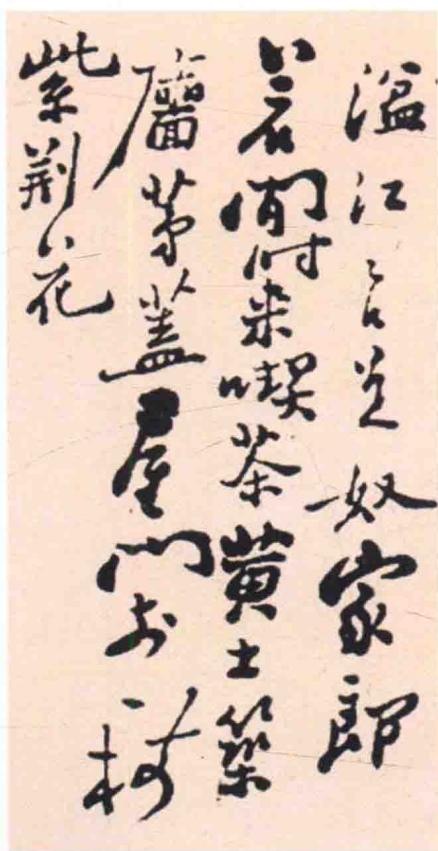 湓江々口是奴家郎
若閒时来喫茶黄土築
廧茅蓋屋門前一樹
紫荆花